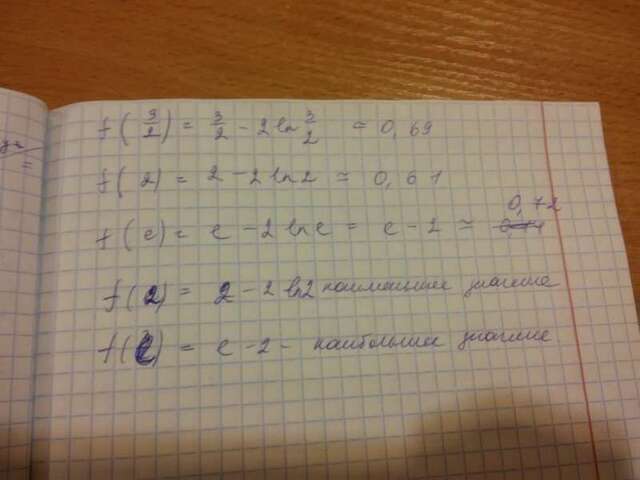 f(3/2) = 3/2 - 2 ln 3/2 ≃ 0,69
f(2) = 2 - 2 ln 2 ≃ 0,61
f(e) = e - 2 ln e = e - 2 ≃ 0,72
f(2) = 2 - 2 ln 2 наименьшее значение
f(e) = e - 2 - наибольшее значение